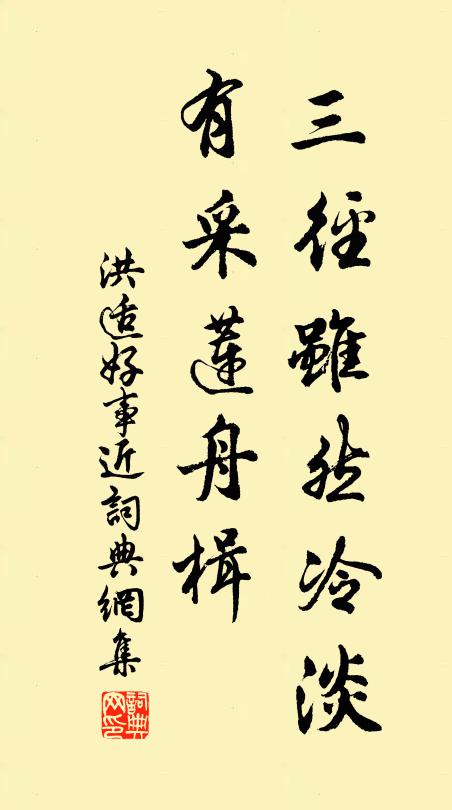 三徑雖然冷淡
有采蓮舟楫
洪适好事近詞典網集
詞典网印